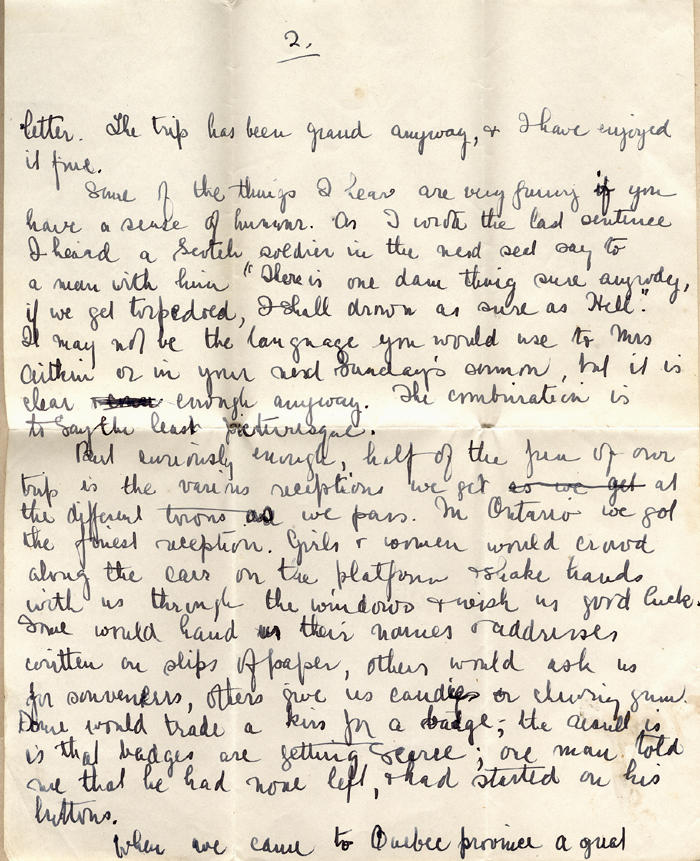 2.
letter. The trip has been grand anyway, & I have enjoyed
it fine.
Some of the things I hear are very funny if you
have a sense of humour. As I wrote the last sentence
I heard a Scotch soldier in the next seat say to
a man with him "There is one dam thing sure anyway,
if we get torpedoed, I shall drown as sure as Hell".
It may not be the language you would use to Mrs
Aitkin or in your next Sunday's sermon, but it is
clear enough anyway. The combination is
to say the least picturesque.
But curiously enough, half of the fun of our
trip is the various receptions we get as we get at
the different towns as we pass. In Ontario we got
the finest reception. Girls & women would crowd
along the cars on the platform & shake hands
with us through the windows & wish us good luck.
Some would hand us their names & addresses
written on slips of paper, others would ask us
for souveniers, others give us candies or chewing gum.
Some would trade a kiss for a badge; the result is
is that badges are getting scarce; one man told
me that he had none left, & had started on his
buttons.
When we came to Quebec province a great